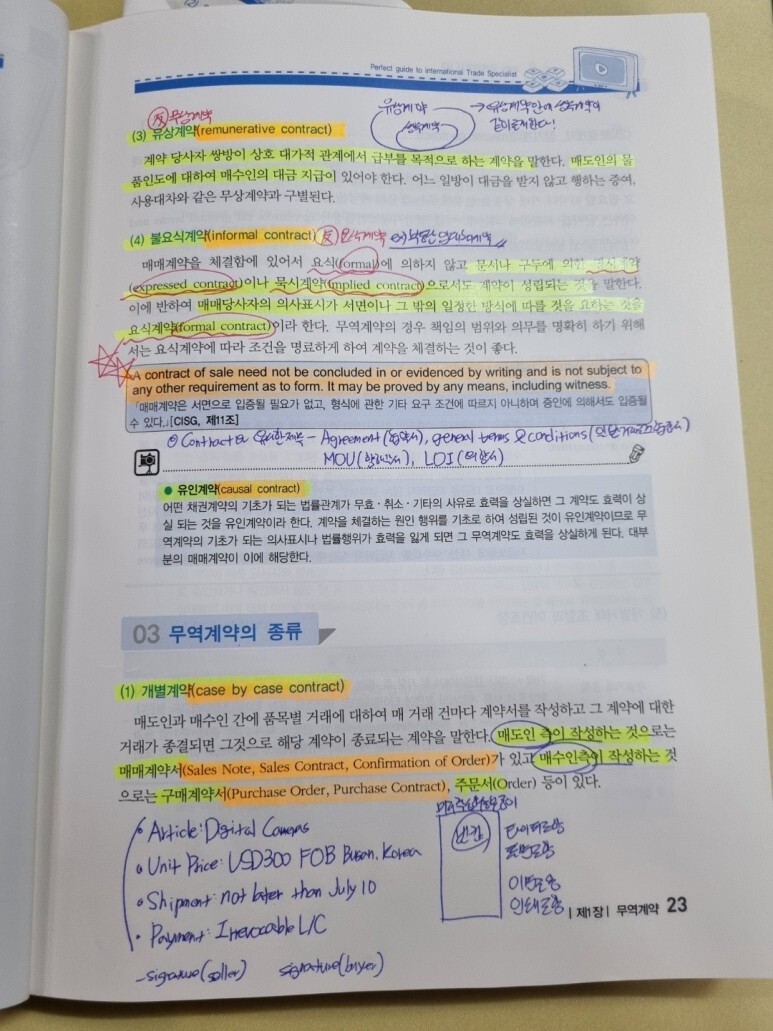 Perfect guide to International Trade Specialist
反 무상계약
유상계약
쌍무계약
(3) 유상계약(remunerative contract)
계약 당사자 쌍방이 상호 대가적 관계에서 급부를 목적으로 하는 계약을 말한다. 매도인의 물
품인도에 대하여 매수인의 대금 지급이 있어야 한다. 어느 일방이 대금을 받지 않고 행하는 증여,
사용대차와 같은 무상계약과 구별된다.
(4) 불요식계약(informal contract) 反 요식계약 ex) 부동산 임대차계약
매매계약을 체결함에 있어서 요식(formal)에 의하지 않고 문서나 구두에 의한 명시계약
(expressed contract)이나 묵시계약(implied contract)으로서도 계약이 성립되는 것을 말한다.
이에 반하여 매매당사자의 의사표시가 서면이나 그 밖의 일정한 방식에 따를 것을 요하는 것을
요식계약(formal contract)이라 한다. 무역계약의 경우 책임의 범위와 의무를 명확히 하기 위해
서는 요식계약에 따라 조건을 명료하게 하여 계약을 체결하는 것이 좋다.
A contract of sale need not be concluded in or evidenced by writing and is not subject to
any other requirement as to form. It may be proved by any means, including witness.
「매매계약은 서면으로 입증될 필요가 없고, 형식에 관한 기타 요구 조건에 따르지 아니하며 증인에 의해서도 입증될
수 있다.」[CISG, 제11조]
Contract와 유사한 제목 - Agreement(협약서), general terms & conditions
MOU(확인서), LOI(의향서)
● 유인계약(causal contract)
어떤 채권계약의 기초가 되는 법률관계가 무효·취소·기타의 사유로 효력을 상실하면 그 계약도 효력이 상
실 되는 것을 유인계약이라 한다. 계약을 체결하는 원인 행위를 기초로 하여 성립된 것이 유인계약이므로 무
역계약의 기초가 되는 의사표시나 법률행위가 효력을 잃게 되면 그 무역계약도 효력을 상실하게 된다. 대부
분의 매매계약이 이에 해당한다.
03 무역계약의 종류
(1) 개별계약(case by case contract)
매도인과 매수인 간에 품목별 거래에 대하여 매 거래 건마다 계약서를 작성하고 그 계약에 대한
거래가 종결되면 그것으로 해당 계약이 종료되는 계약을 말한다. 매도인 측이 작성하는 것으로는
매매계약서(Sales Note, Sales Contract, Confirmation of Order)가 있고 매수인측이 작성하는 것
으로는 구매계약서(Purchase Order, Purchase Contract), 주문서(Order) 등이 있다.
• Article: Digital Cameras
• Unit Price: USD300 FOB Busan, Korea
• Shipment: not later than July 10
• Payment: Irrevocable L/C
- signature(seller) signature(buyer)
빈칸
타이터조항
표면조항
이면조항
인쇄조항
| 제1장 | 무역계약 23